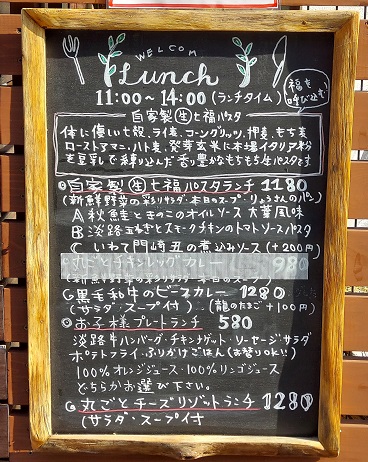 WELCOM
Lunch
11:00~14:00 (ランチタイム)
福を
呼び込む
自家製 生 七福パスタ
体に優しい七穀、ライ麦、コーングリッツ、押麦、もち麦
ローストアマニ、ハト麦、発芽玄米に本場イタリア粉
を豆乳で練り込んだ香り豊かなもちもち生パスタです
自家製 生 七福パスタランチ 1180
(新鮮野菜の彩りサラダ・本日のスープ・りょうさんのパン)
A 秋鮭ときのこのオイルソース 大葉風味
B 淡路玉ねぎとスモークチキンのトマトソースパスタ
C いわて門崎丑の煮込みソース (+200円)
丸ごとチキンレッグカレー 980
(新鮮野菜の彩りサラダ・本日のスープ)
黒毛和牛のビーフカレー 1280
(サラダ・スープ付) (龍のたまご+100円)
お子様プレートランチ 580
淡路牛ハンバーグ・チキンナゲット・ソーセージ・サラダ
ポテトフライ・ふりかけごはん (お替りOK!!)
100%オレンジジュース・100%リンゴジュース
どちらかお選び下さい。
丸ごとチーズリゾットランチ 1280
(サラダ・スープ付